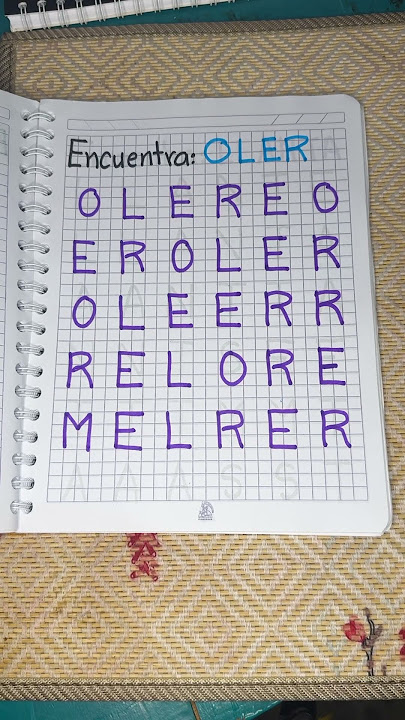 Encuentra: OLER
O L E R E O
E R O L E R
O L E E R R
R E L O R E
M E L R E R